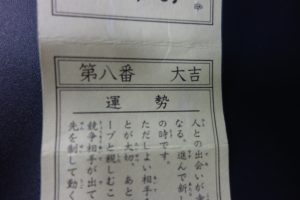 第八番 大吉
運勢
人との出会いが
なる。進んで新し
の時です。
ただしよい相手
とが大切。あと
ープと親しむこ
競争相手が出て
先を制して動く